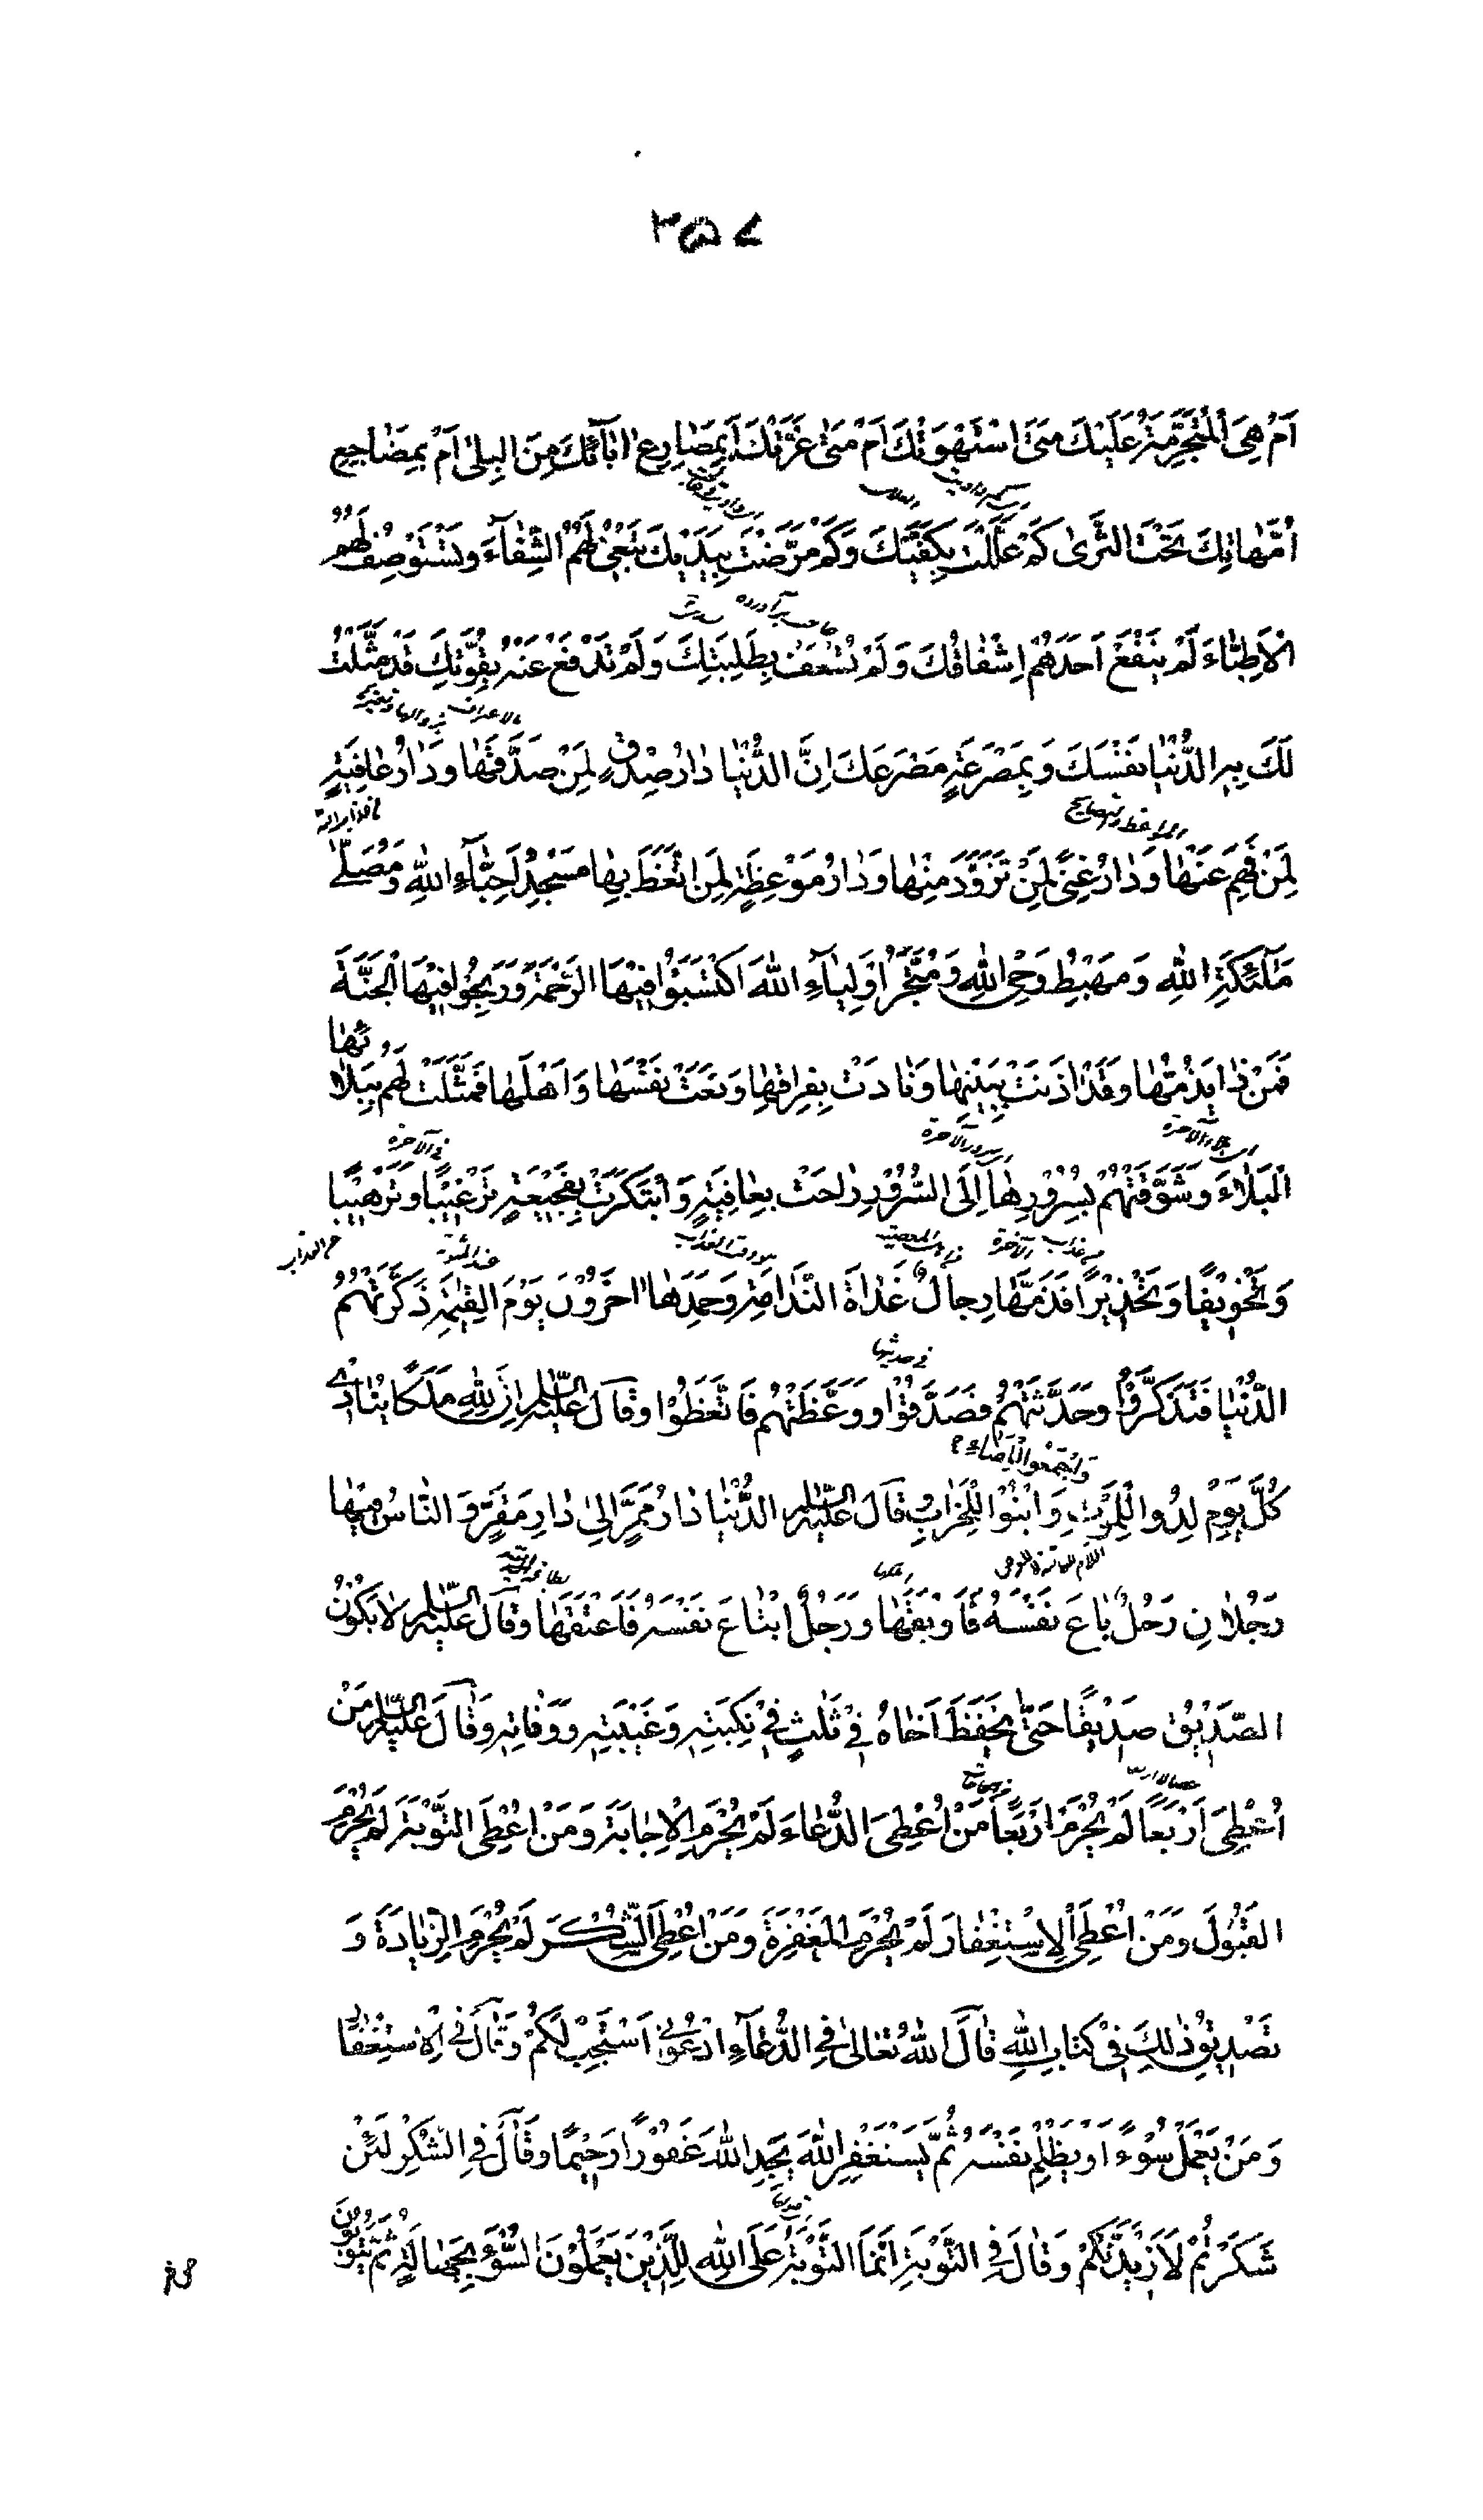 ٢٥٧
اَمْ هِیَ الْمُتَجَرِّمَةُ عَلَیْكَ مَتَی اسْتَهْوَتْكَ اَمْ مَتٰی غَرَّتْكَ اَبِمَصٰارِعِ اٰبٰآئِكَ مِنَ الْبِلیٰ اَمْ بِمَضٰاجِعِ
اُمَّهٰاتِكَ تَحْتَ الثَّریٰ كَمْ عَلَّلْتَ بِكَفَّیْكَ وَكَمْ مَرَّضْتَ بِیَدَیْكَ تَبْغِیْ لَهُمُ الشِّفٰآءَ وَتَسْتَوْصِفُ لَهُمُ
الْاَطِبّٰاءَ لَمْ یَنْفَعْ اَحَدَهُمْ اِشْفٰاقُكَ وَلَمْ تُسْعَفْ بِطَلِبَتِكَ وَلَمْ تَدْفَعْ عَنْهُ بِقُوَّتِكَ قَدْ مَثَّلَتْ
لَكَ بِهِ الدُّنْیٰا نَفْسَكَ وَبِمَصْرَعِهِ مَصْرَعَكَ اِنَّ الدُّنْیٰا دٰارُ صِدْقٍ لِمَنْ صَدَّقَهٰا وَدٰارُ عٰافِیَةٍ
لِمَنْ فَهِمَ عَنْهٰا وَدٰارُ غِنًی لِمَنْ تَزَوَّدَ مِنْهٰا وَدٰارُ مَوْعِظَةٍ لِمَنِ اتَّعَظَ بِهٰا مَسْجِدُ اَحِبّٰآءِ اللّٰهِ وَمُصَلّٰی
مَلٰٓئِكَةِ اللّٰهِ وَمَهْبِطُ وَحْیِ اللّٰهِ وَمَتْجَرُ اَوْلِیٰآءِ اللّٰهِ اكْتَسَبُوْا فِیْهَا الرَّحْمَةَ وَرَبِحُوْا فِیْهَا الْجَنَّةَ
فَمَنْ ذٰا یَذُمُّهٰا وَقَدْ اٰذَنَتْ بِبَیْنِهٰا وَنٰادَتْ بِفِرٰاقِهٰا وَنَعَتْ نَفْسَهٰا وَاَهْلَهٰا فَمَثَّلَتْ لَهُمْ بِبَلٰائِهَا
الْبَلٰاءَ وَشَوَّقَتْهُمْ بِسُرُوْرِهٰا اِلَی السُّرُوْرِ رٰاحَتْ بِعٰافِیَةٍ وَابْتَكَرَتْ بِفَجِیْعَةٍ تَرْغِیْبًا وَتَرْهِیْبًا
وَتَخْوِیْفًا وَتَحْذِیْرًا فَذَمَّهٰا رِجٰالٌ غَدٰاةَ النَّدٰامَةِ وَحَمِدَهٰا اٰخَرُوْنَ یَوْمَ الْقِیٰمَةِ ذَكَّرَتْهُمُ
الدُّنْیٰا فَتَذَكَّرُوْا وَحَدَّثَتْهُمْ فَصَدَّقُوْا وَوَعَظَتْهُمْ فَاتَّعَظُوْا وَقٰالَ عَلَیْهِ السَّلٰمُ اِنَّ لِلّٰهِ مَلَكًا یُنٰادِیْ
كُلَّ یَوْمٍ لِدُوْا لِلْمَوْتِ وَابْنُوْا لِلْخَرٰابِ وَقٰالَ عَلَیْهِ السَّلٰمُ الدُّنْیٰا دٰارُ مَمَرٍّ اِلیٰ دٰارِ مَقَرٍّ وَالنّٰاسُ فِیْهٰا
رَجُلٰانِ رَجُلٌ بٰاعَ نَفْسَهُ فَاَوْبَقَهٰا وَرَجُلٌ ابْتٰاعَ نَفْسَهُ فَاَعْتَقَهٰا وَقٰالَ عَلَیْهِ السَّلٰمُ لٰا یَكُوْنُ
الصَّدِیْقُ صَدِیْقًا حَتّٰی یَحْفَظَ اَخٰاهُ فِیْ ثَلٰثٍ فِیْ نَكْبَتِهِ وَغَیْبَتِهِ وَوَفٰاتِهِ وَقٰالَ عَلَیْهِ السَّلٰمُ مَنْ
اُعْطِیَ اَرْبَعًا لَمْ یُحْرَمْ اَرْبَعًا مَنْ اُعْطِیَ الدُّعٰاءَ لَمْ یُحْرَمِ الْاِجٰابَةَ وَمَنْ اُعْطِیَ التَّوْبَةَ لَمْ یُحْرَمِ
الْقَبُوْلَ وَمَنْ اُعْطِیَ الْاِسْتِغْفٰارَ لَمْ یُحْرَمِ الْمَغْفِرَةَ وَمَنْ اُعْطِیَ الشُّكْرَ لَمْ یُحْرَمِ الزِّیٰادَةَ وَ
تَصْدِیْقُ ذٰلِكَ فِیْ كِتٰابِ اللّٰهِ قٰالَ اللّٰهُ تَعٰالیٰ فِی الدُّعٰآءِ ادْعُوْنِیْ اَسْتَجِبْ لَكُمْ وَقٰالَ فِی الْاِسْتِغْفٰارِ
وَمَنْ یَعْمَلْ سُوْءًا اَوْ یَظْلِمْ نَفْسَهُ ثُمَّ یَسْتَغْفِرِ اللّٰهَ یَجِدِ اللّٰهَ غَفُوْرًا رَحِیْمًا وَقٰالَ فِی الشُّكْرِ لَئِنْ
شَكَرْتُمْ لَاَزِیْدَنَّكُمْ وَقٰالَ فِی التَّوْبَةِ اِنَّمَا التَّوْبَةُ عَلَی اللّٰهِ لِلَّذِیْنَ یَعْمَلُوْنَ السُّوْٓءَ بِجَهٰالَةٍ ثُمَّ یَتُوْبُوْنَ